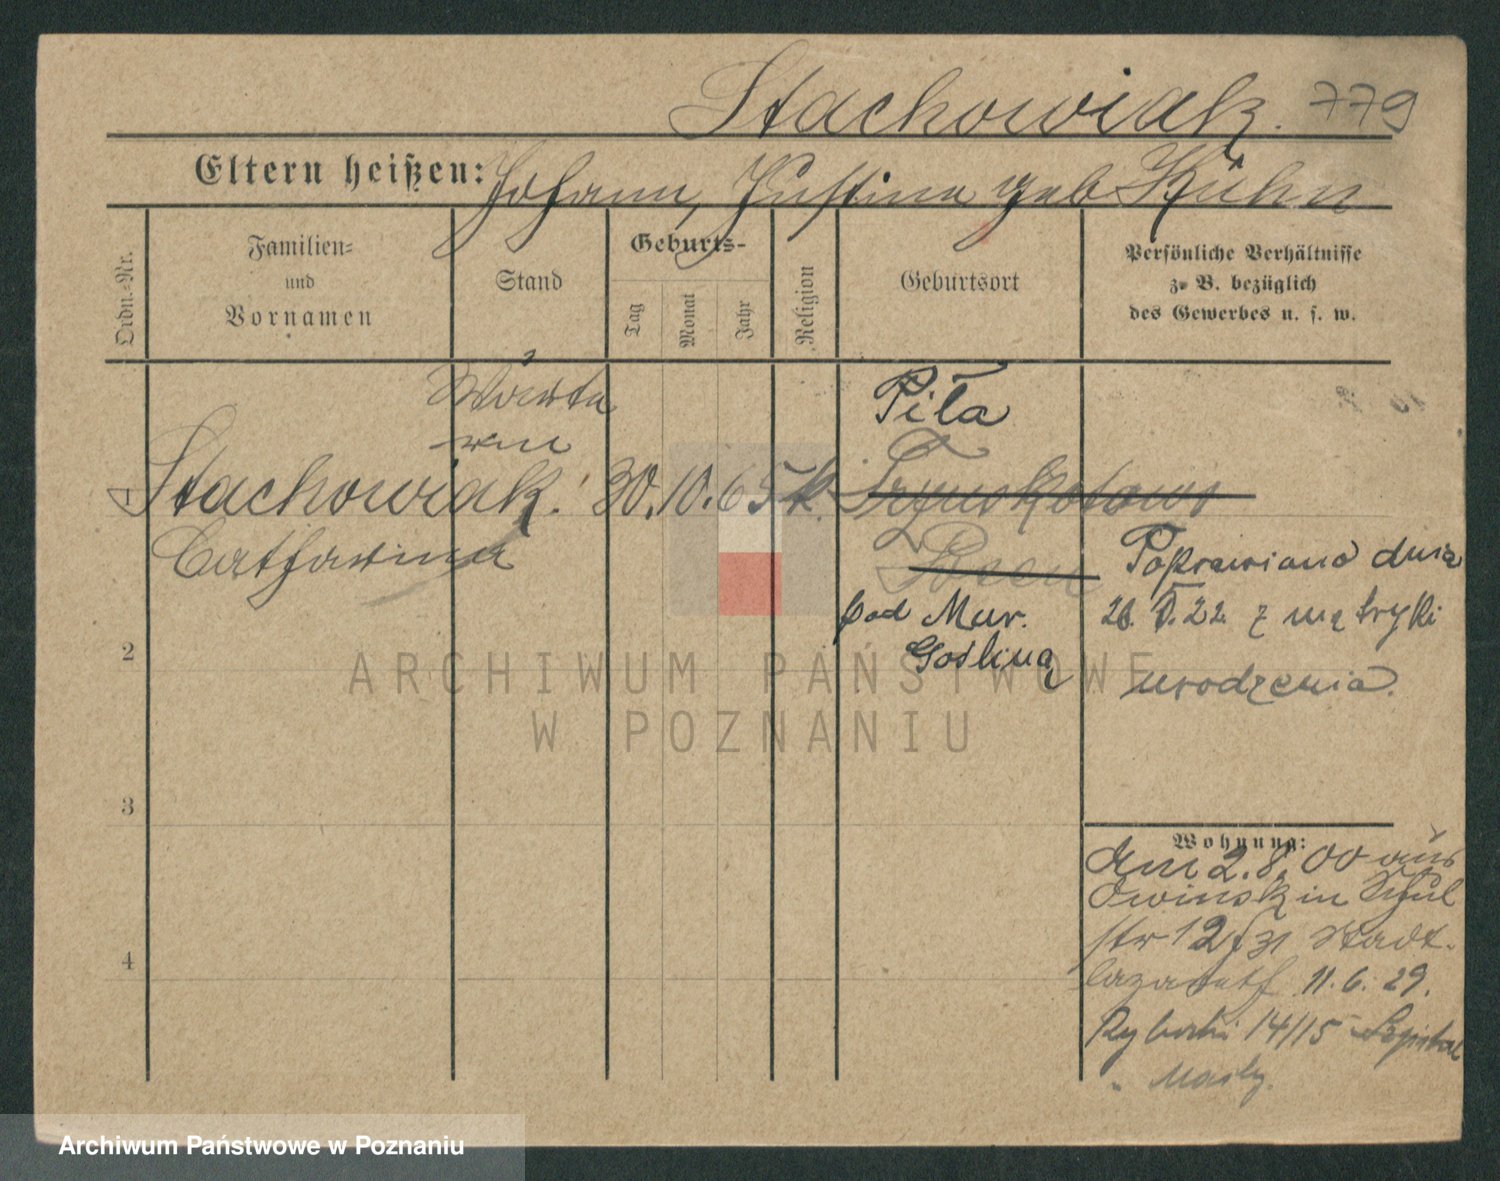 Stachowiak. 779
Eltern heißen: Johann, Justina geb Kühn
Ordn.-Nr.
Familien=
und
Vornamen
Stand
Geburts-
Tag
Monat
Jahr
Religion
Geburtsort
Persönliche Verhältnisse
z. B. bezüglich
des Gewerbes u. s. w.
Wärte
rin
Piła
1 Stachowiak. 30. 10. 65 k.
Catharina
pod Mur.
Gośliną
Poprawiono dnia
26. V. 22 z matryki
urodzenia.
2
3
4
Wohnung:
Am 2. 8. 00 aus
Owinsk in Schul
str 12 Stadt-
lazareth 11. 6. 29.
Rybaki 14/15 Szpital
ARCHIWUM PAŃSTWOWE
W POZNANIU
Archiwum Państwowe w Poznaniu